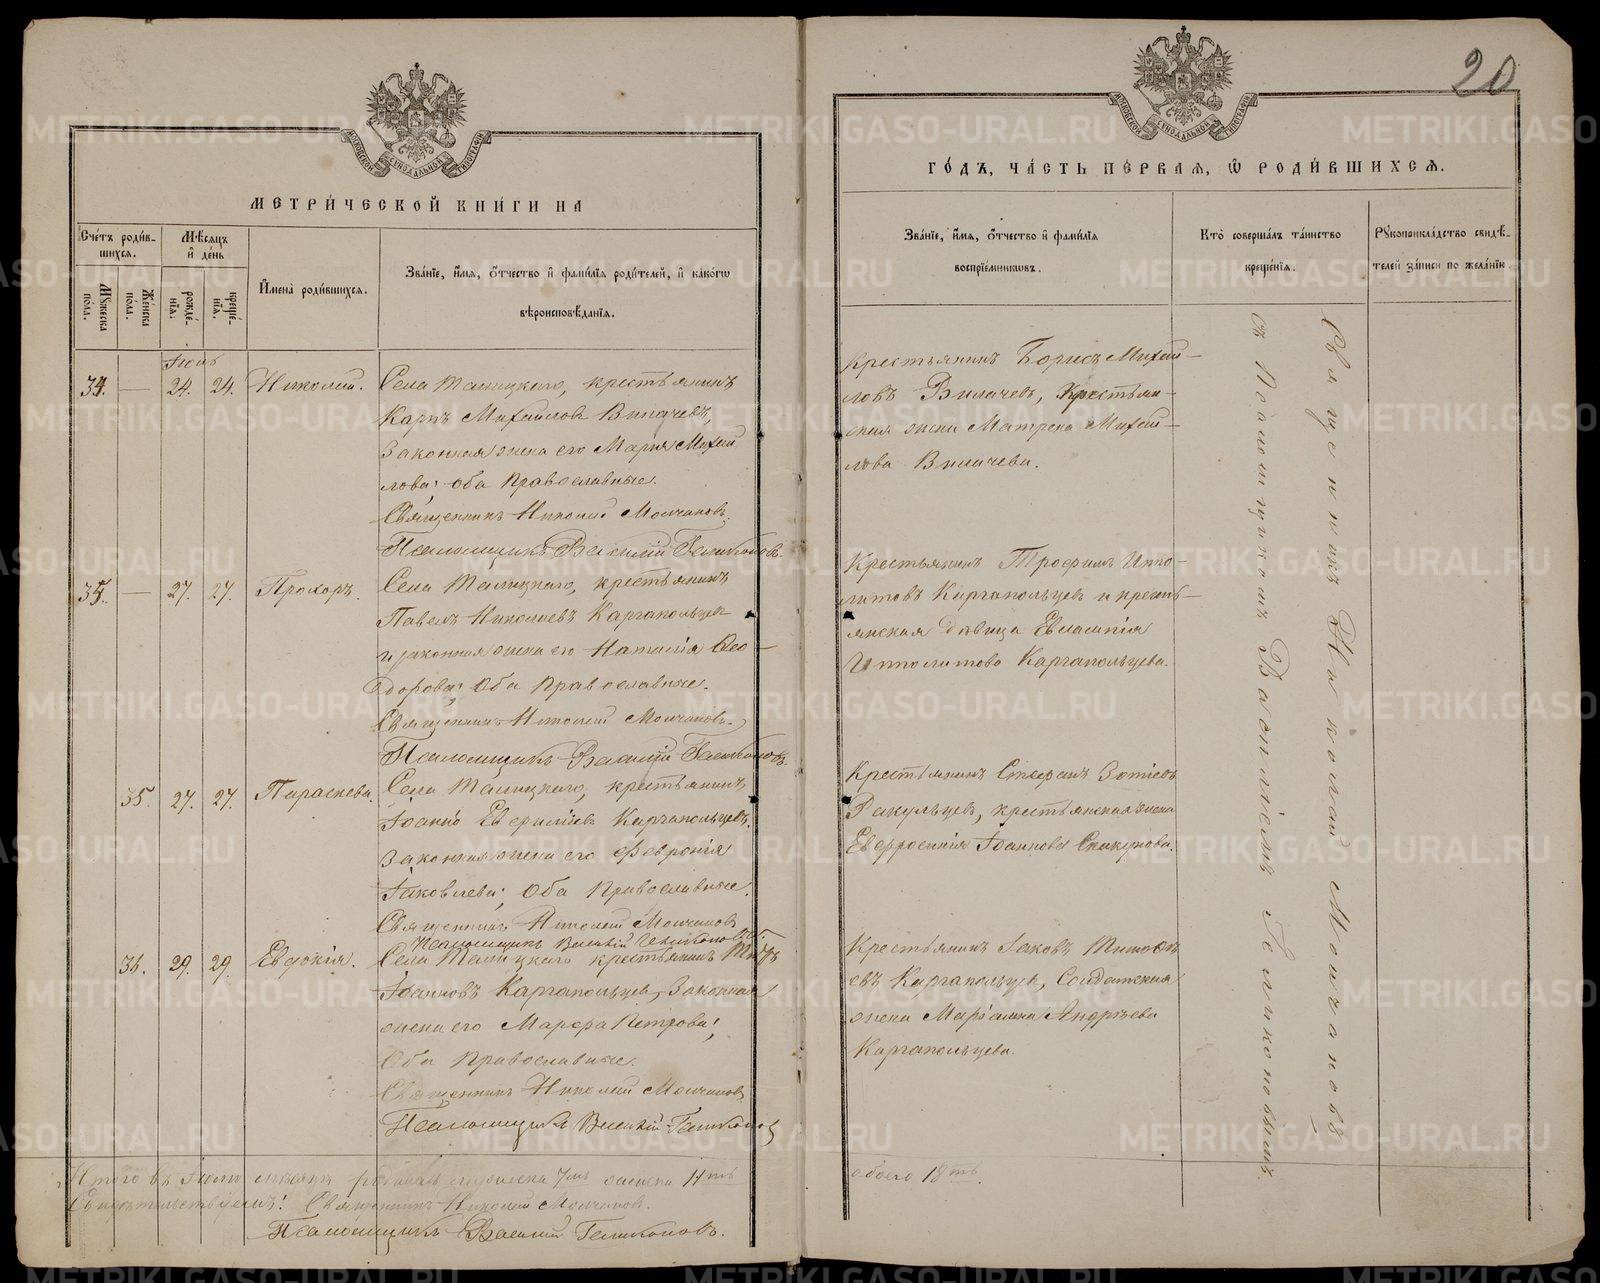 20
МЕТРИ́ЧЕСКОЙ КНИ́ГИ НА
ГО́ДЪ, ЧА́СТЬ ПЕ́РВАЯ, Ѡ РОДИ́ВШИХСЯ.
Сче́тъ роди́в-
шихся.
Мѣ́сяцъ
и де́нь
Мꙋжеска по́ла.
Же́нска по́ла.
рожде́-
нїя.
креще́-
нїя.
И҆мена̀ роди́вшихся.
Зва́нїе, и҆́мя, ѻ҆́тчество и҆ фами́лїя роди́телей, и҆ како́гѡ
вѣроисповѣ́данїя.
Зва́нїе, и҆́мя, ѻ҆́тчество и҆ фами́лїя
воспрїе́мниковъ.
Кто̀ соверша́лъ та́инство
креще́нїя.
Рꙋкоприкла́дство свидѣ́-
телей за́писи по жела́нїю.
Іюль
34. — 24. 24. Николай.
Села Талицкаго, крестьянинъ
Карпъ Михайловъ Вилачевъ,
Законная жена его Марія Михай
лова; оба Православные.
Священникъ Николай Молчановъ.
Псаломщикъ Василій Геликоновъ.
Крестьянинъ Борисъ Михай-
ловъ Вилачевъ, Крестьян-
ская жена Матрена Михай-
лова Вилачева.
35. — 27. 27. Прохоръ.
Села Талицкаго, крестьянинъ
Павелъ Николаевъ Каргапольцевъ
и законная жена его Наталія Ѳео-
дорова; Оба Православные.
Священникъ Николай Молчановъ.
Псаломщикъ Василій Геликоновъ.
Крестьянинъ Трофимъ Иппо-
литовъ Каргапольцевъ и кресть-
янская дѣвица Евлампія
Ипполитова Каргапольцева.
35. 27. 27. Параскева.
Села Талицкаго, крестьянинъ
Іоаннъ Каргапольцевъ.
Законная жена его Февронія
Іаковлева; Оба Православные.
Священникъ Николай Молчановъ
Псаломщикъ Василій Геликоновъ.
Крестьянинъ Стефанъ Зотіевъ
Ракульцевъ, крестьянская жена
Евфросинія Іоаннова
36. 29. 29. Евдокія.
Села Талицкаго крестьянинъ
Іоанновъ Каргапольцевъ, Законная
жена его Марфа Петрова;
Оба Православные.
Священникъ Николай Молчановъ
Псаломщикъ Василій Геликоновъ
Крестьянинъ Іаковъ Тимоѳе
евъ Каргапольцевъ, Солдатская
жена Маріамна Андреева
Каргапольцева.
Священникъ Николай Молчановъ
съ Псаломщикомъ Василіемъ Геликоновымъ
Итого въ Іюлѣ мѣсяцѣ родилось мужеска 7мь женска 11ть
обоего 18ть.
Свидѣтельствуемъ! Священникъ Николай Молчановъ.
Псаломщикъ Василій Геликоновъ.
METRIKI.GASO-URAL.RU